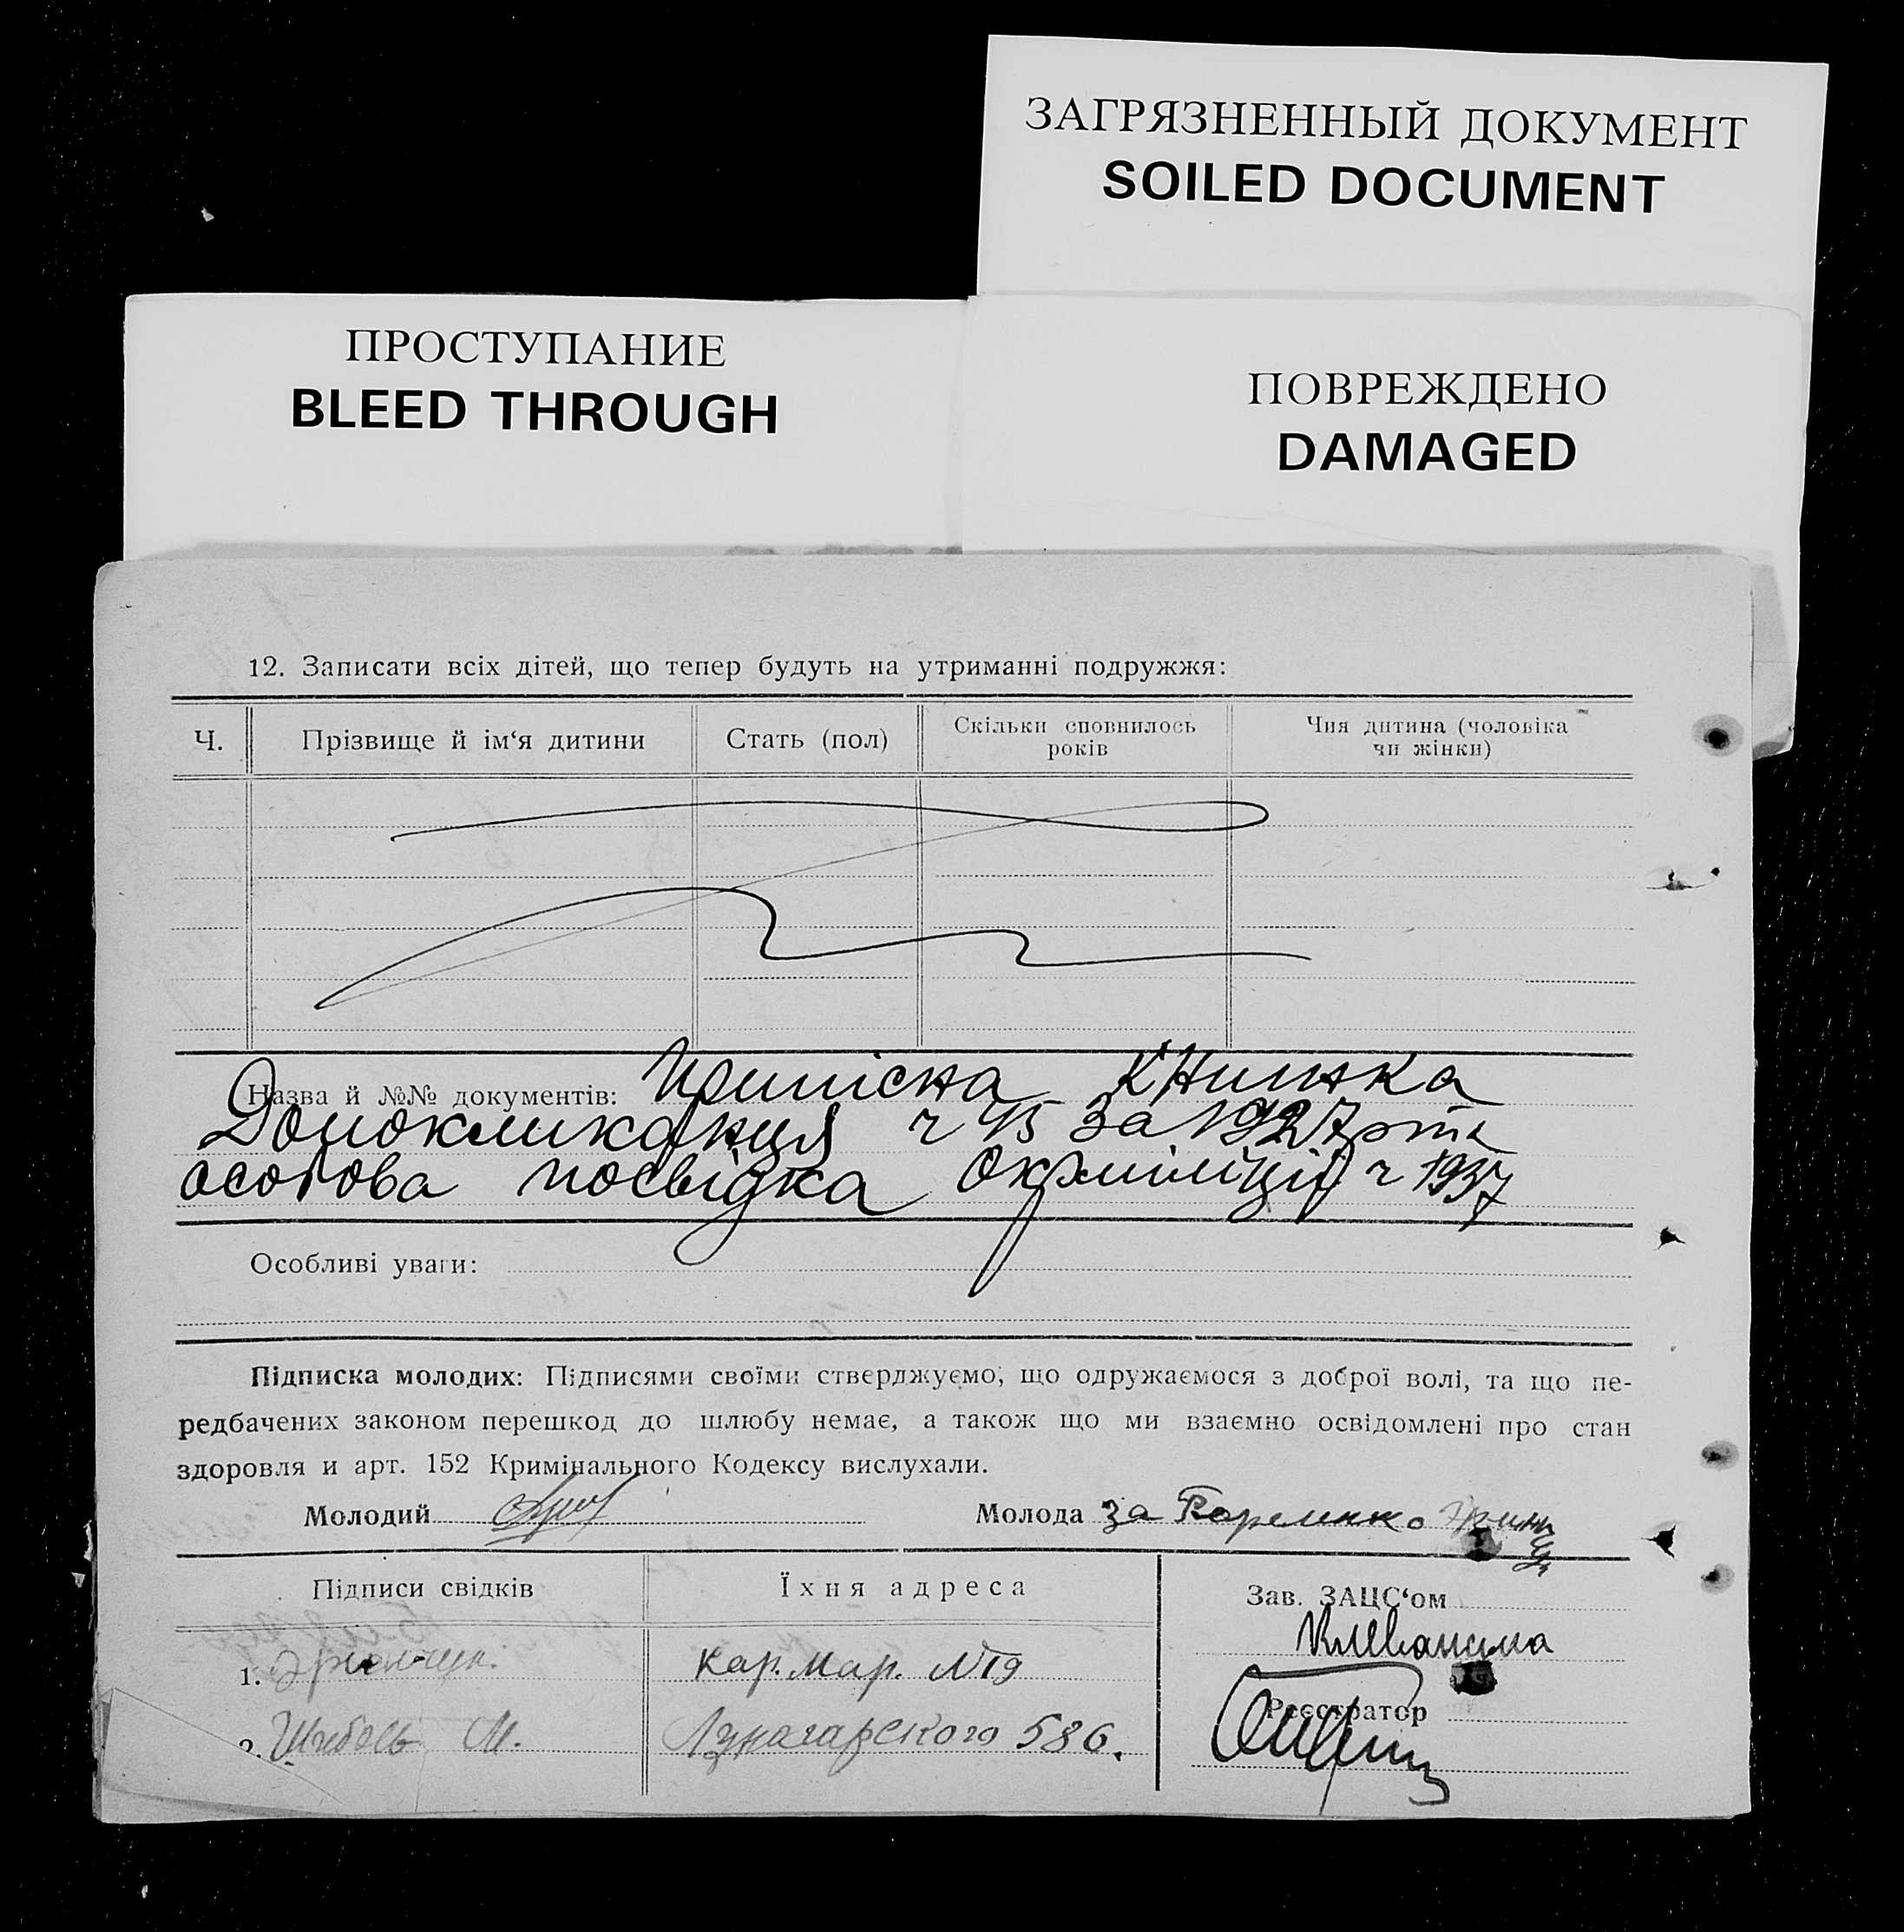 ЗАГРЯЗНЕННЫЙ ДОКУМЕНТ
SOILED DOCUMENT
ПРОСТУПАНИЕ
BLEED THROUGH
ПОВРЕЖДЕНО
DAMAGED
12. Записати всіх дітей, що тепер будуть на утриманні подружжя:
Ч.
Прізвище й ім‘я дитини
Стать (пол)
Скільки сповнилось
років
Чия дитина (чоловіка
чи жінки)
Назва й №№ документів: Припісна Книжка
ч 45 за 1927 
особова посвідка Окрміліції ч 1937
Особливі уваги:
Підписка молодих: Підписями своїми стверджуємо, що одружаємося з доброї волі, та що пе-
редбачених законом перешкод до шлюбу немає, а також що ми взаємно освідомлені про стан
здоровля и арт. 152 Кримінального Кодексу вислухали.
Молодий
Молода за
Підписи свідків
Їхня адреса
Зав. ЗАЦС‘ом
1.
Кар. Мар. №19
Реєстратор
2. М.
586.